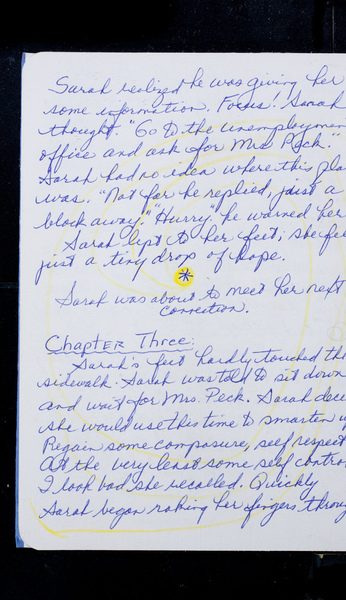 Sarah realized he was giving her
some information. Focus. Sarah
thought. "Go to the unemploymen
office and ask for Mrs Peck."
Sarah had no idea where this pla
was. "Not far he replied, just a
block away." "Hurry" he warned her
Sarah lept to her feet; she fee
just a tiny drop of hope.
*
Sarah was about to meet her next
connection.
Chapter Three:
Sarah's feet hardly touched th
sidewalk. Sarah was told to sit down
and wait for Mrs. Peck. Sarah deci
she would use this time to smarten up
Regain some composure, self respect
At the very least some self contro
I look bad she recalled. Quickly
Sarah began raking her fingers throug